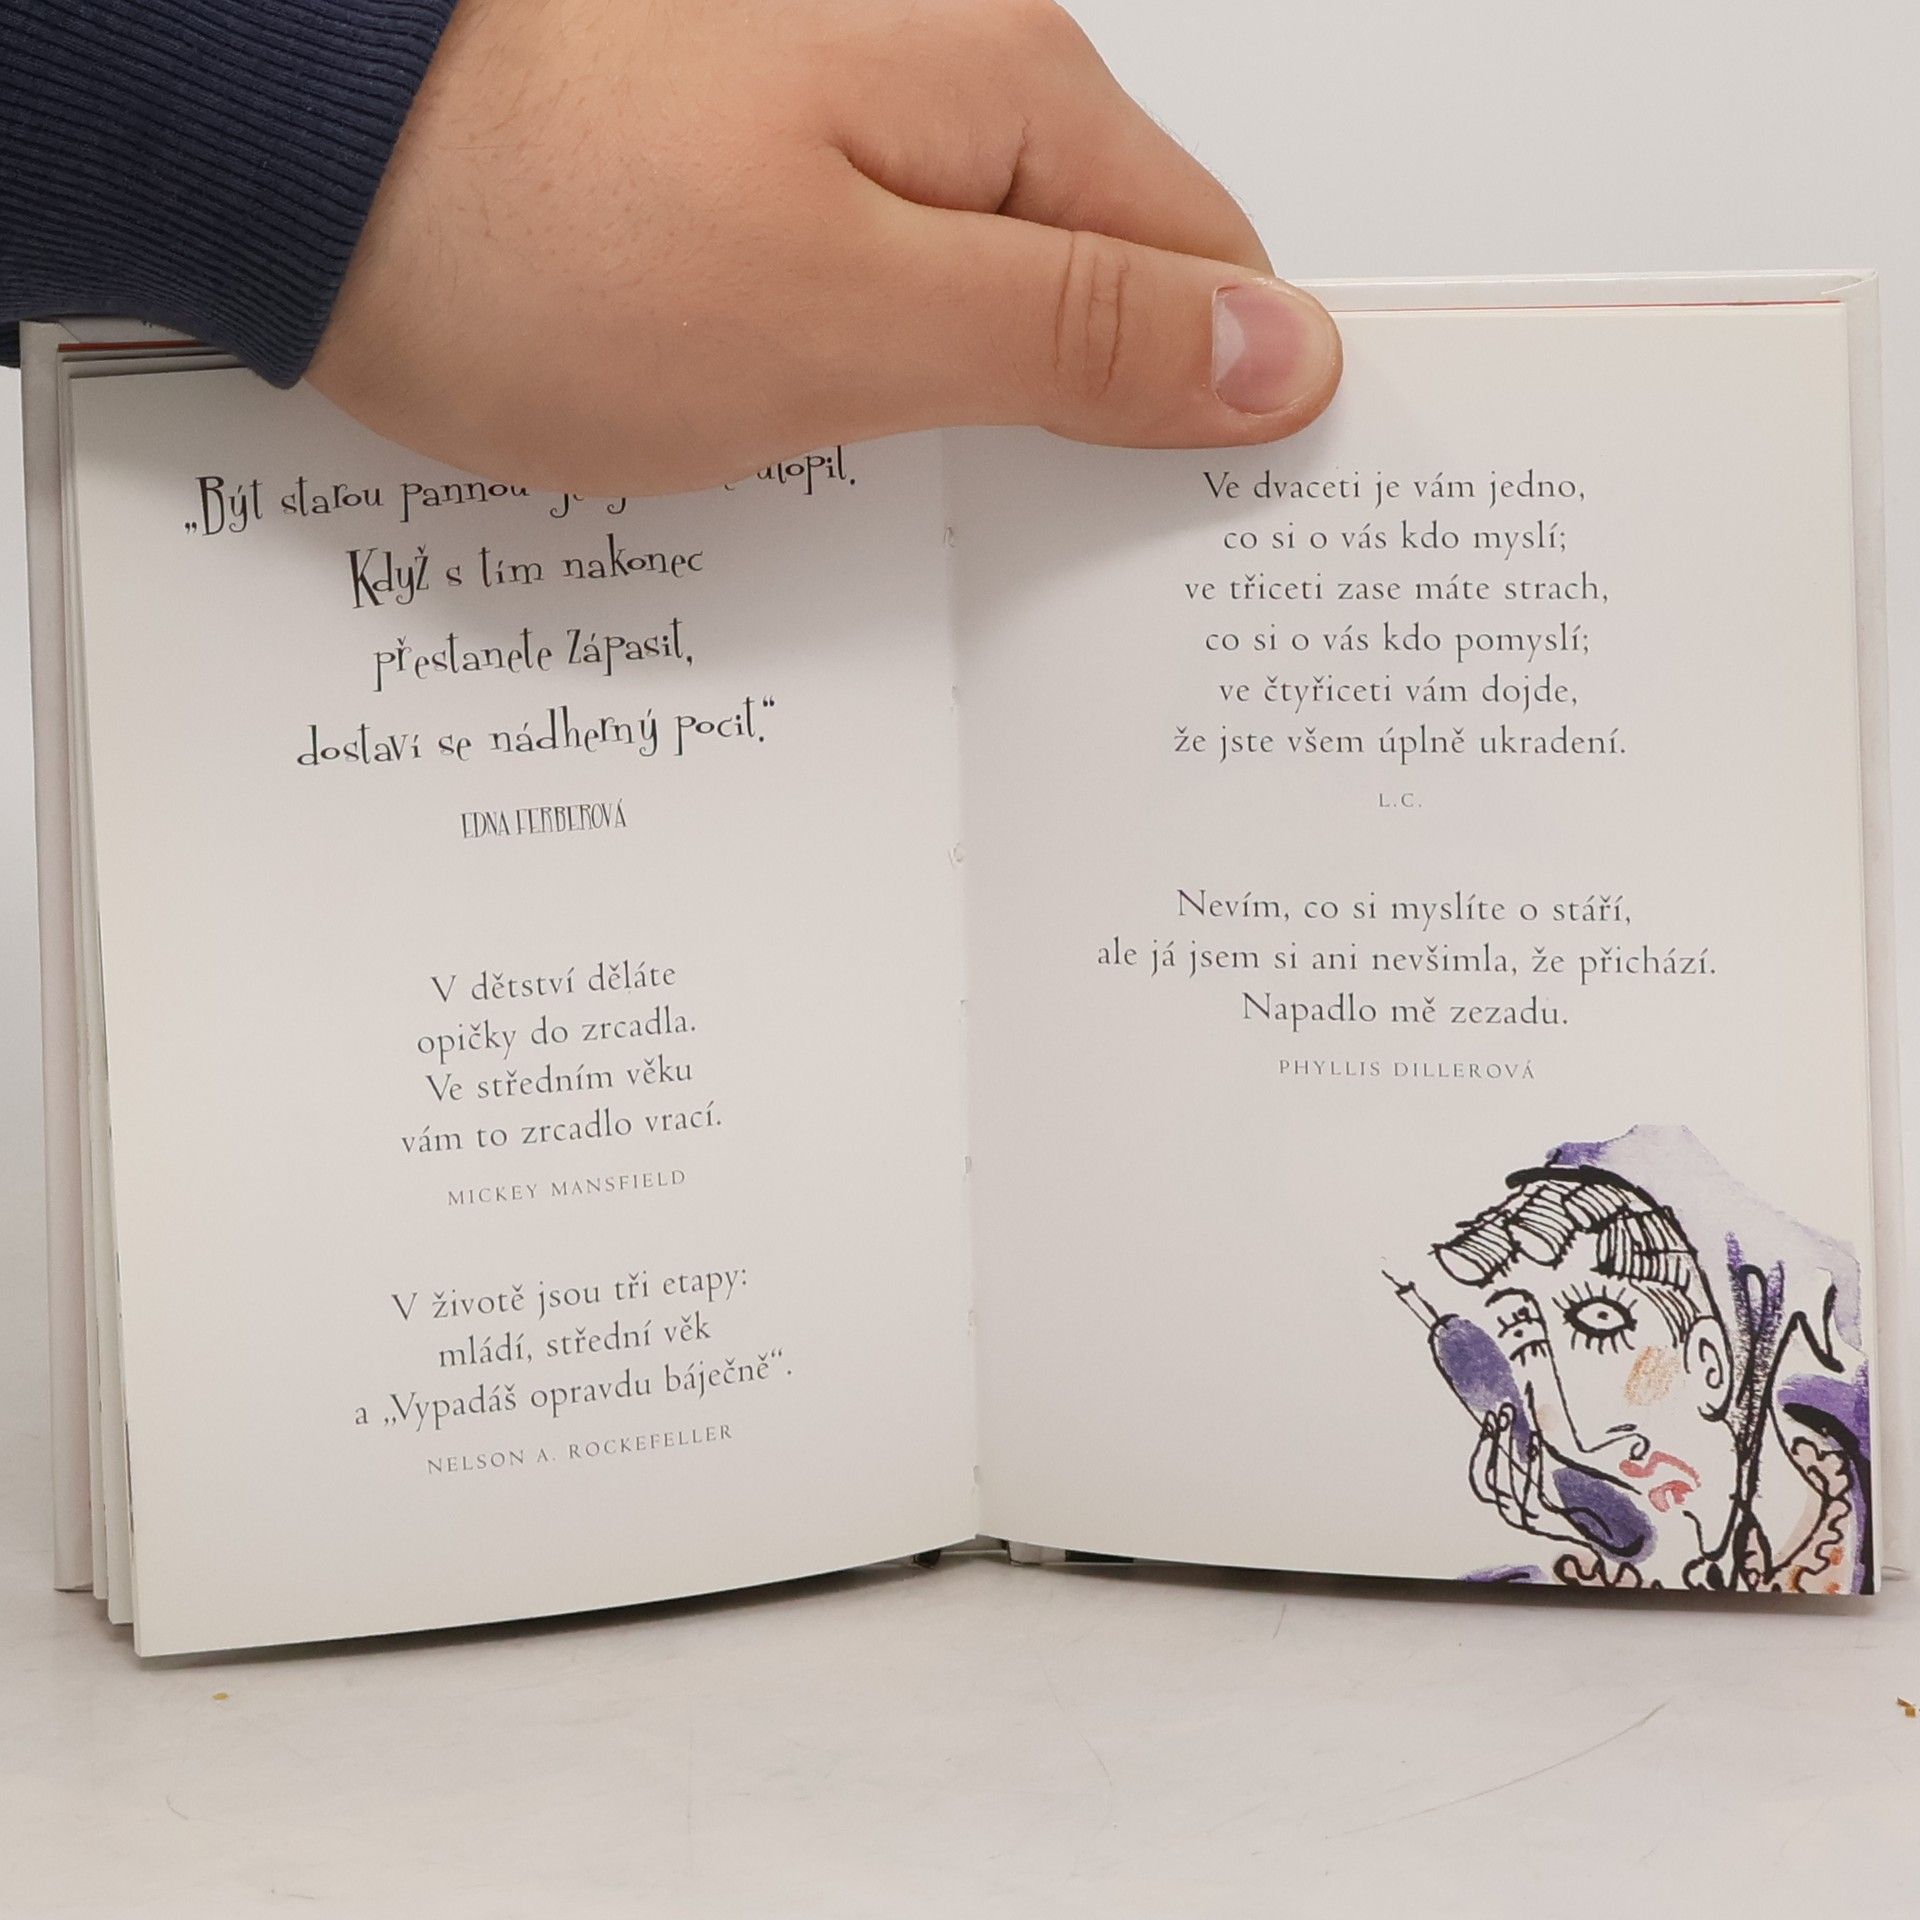 „Být starou pannou
utopil.
Když s tím nakonec
přestanete zápasit,
dostaví se nádherný pocit.“
EDNA FERBEROVÁ
V dětství děláte
opičky do zrcadla.
Ve středním věku
vám to zrcadlo vrací.
MICKEY MANSFIELD
V životě jsou tři etapy:
mládí, střední věk
a „Vypadáš opravdu báječně“.
NELSON A. ROCKEFELLER
Ve dvaceti je vám jedno,
co si o vás kdo myslí;
ve třiceti zase máte strach,
co si o vás kdo pomyslí;
ve čtyřiceti vám dojde,
že jste všem úplně ukradení.
L.C.
Nevím, co si myslíte o stáří,
ale já jsem si ani nevšimla, že přichází.
Napadlo mě zezadu.
PHYLLIS DILLEROVÁ